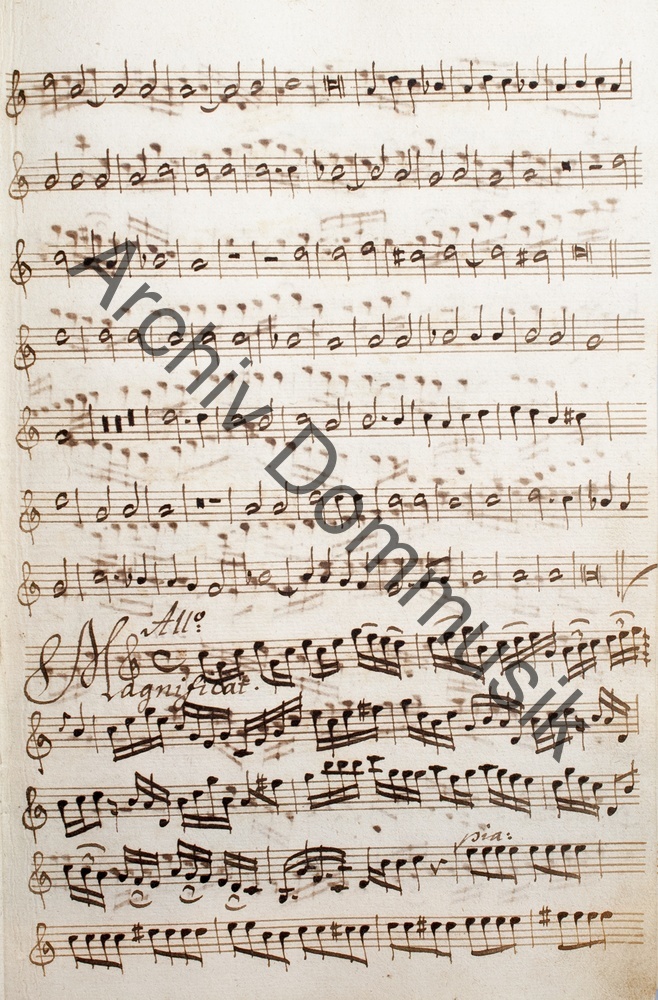 Archiv Dommusik
All:º
Magnificat.
pia: